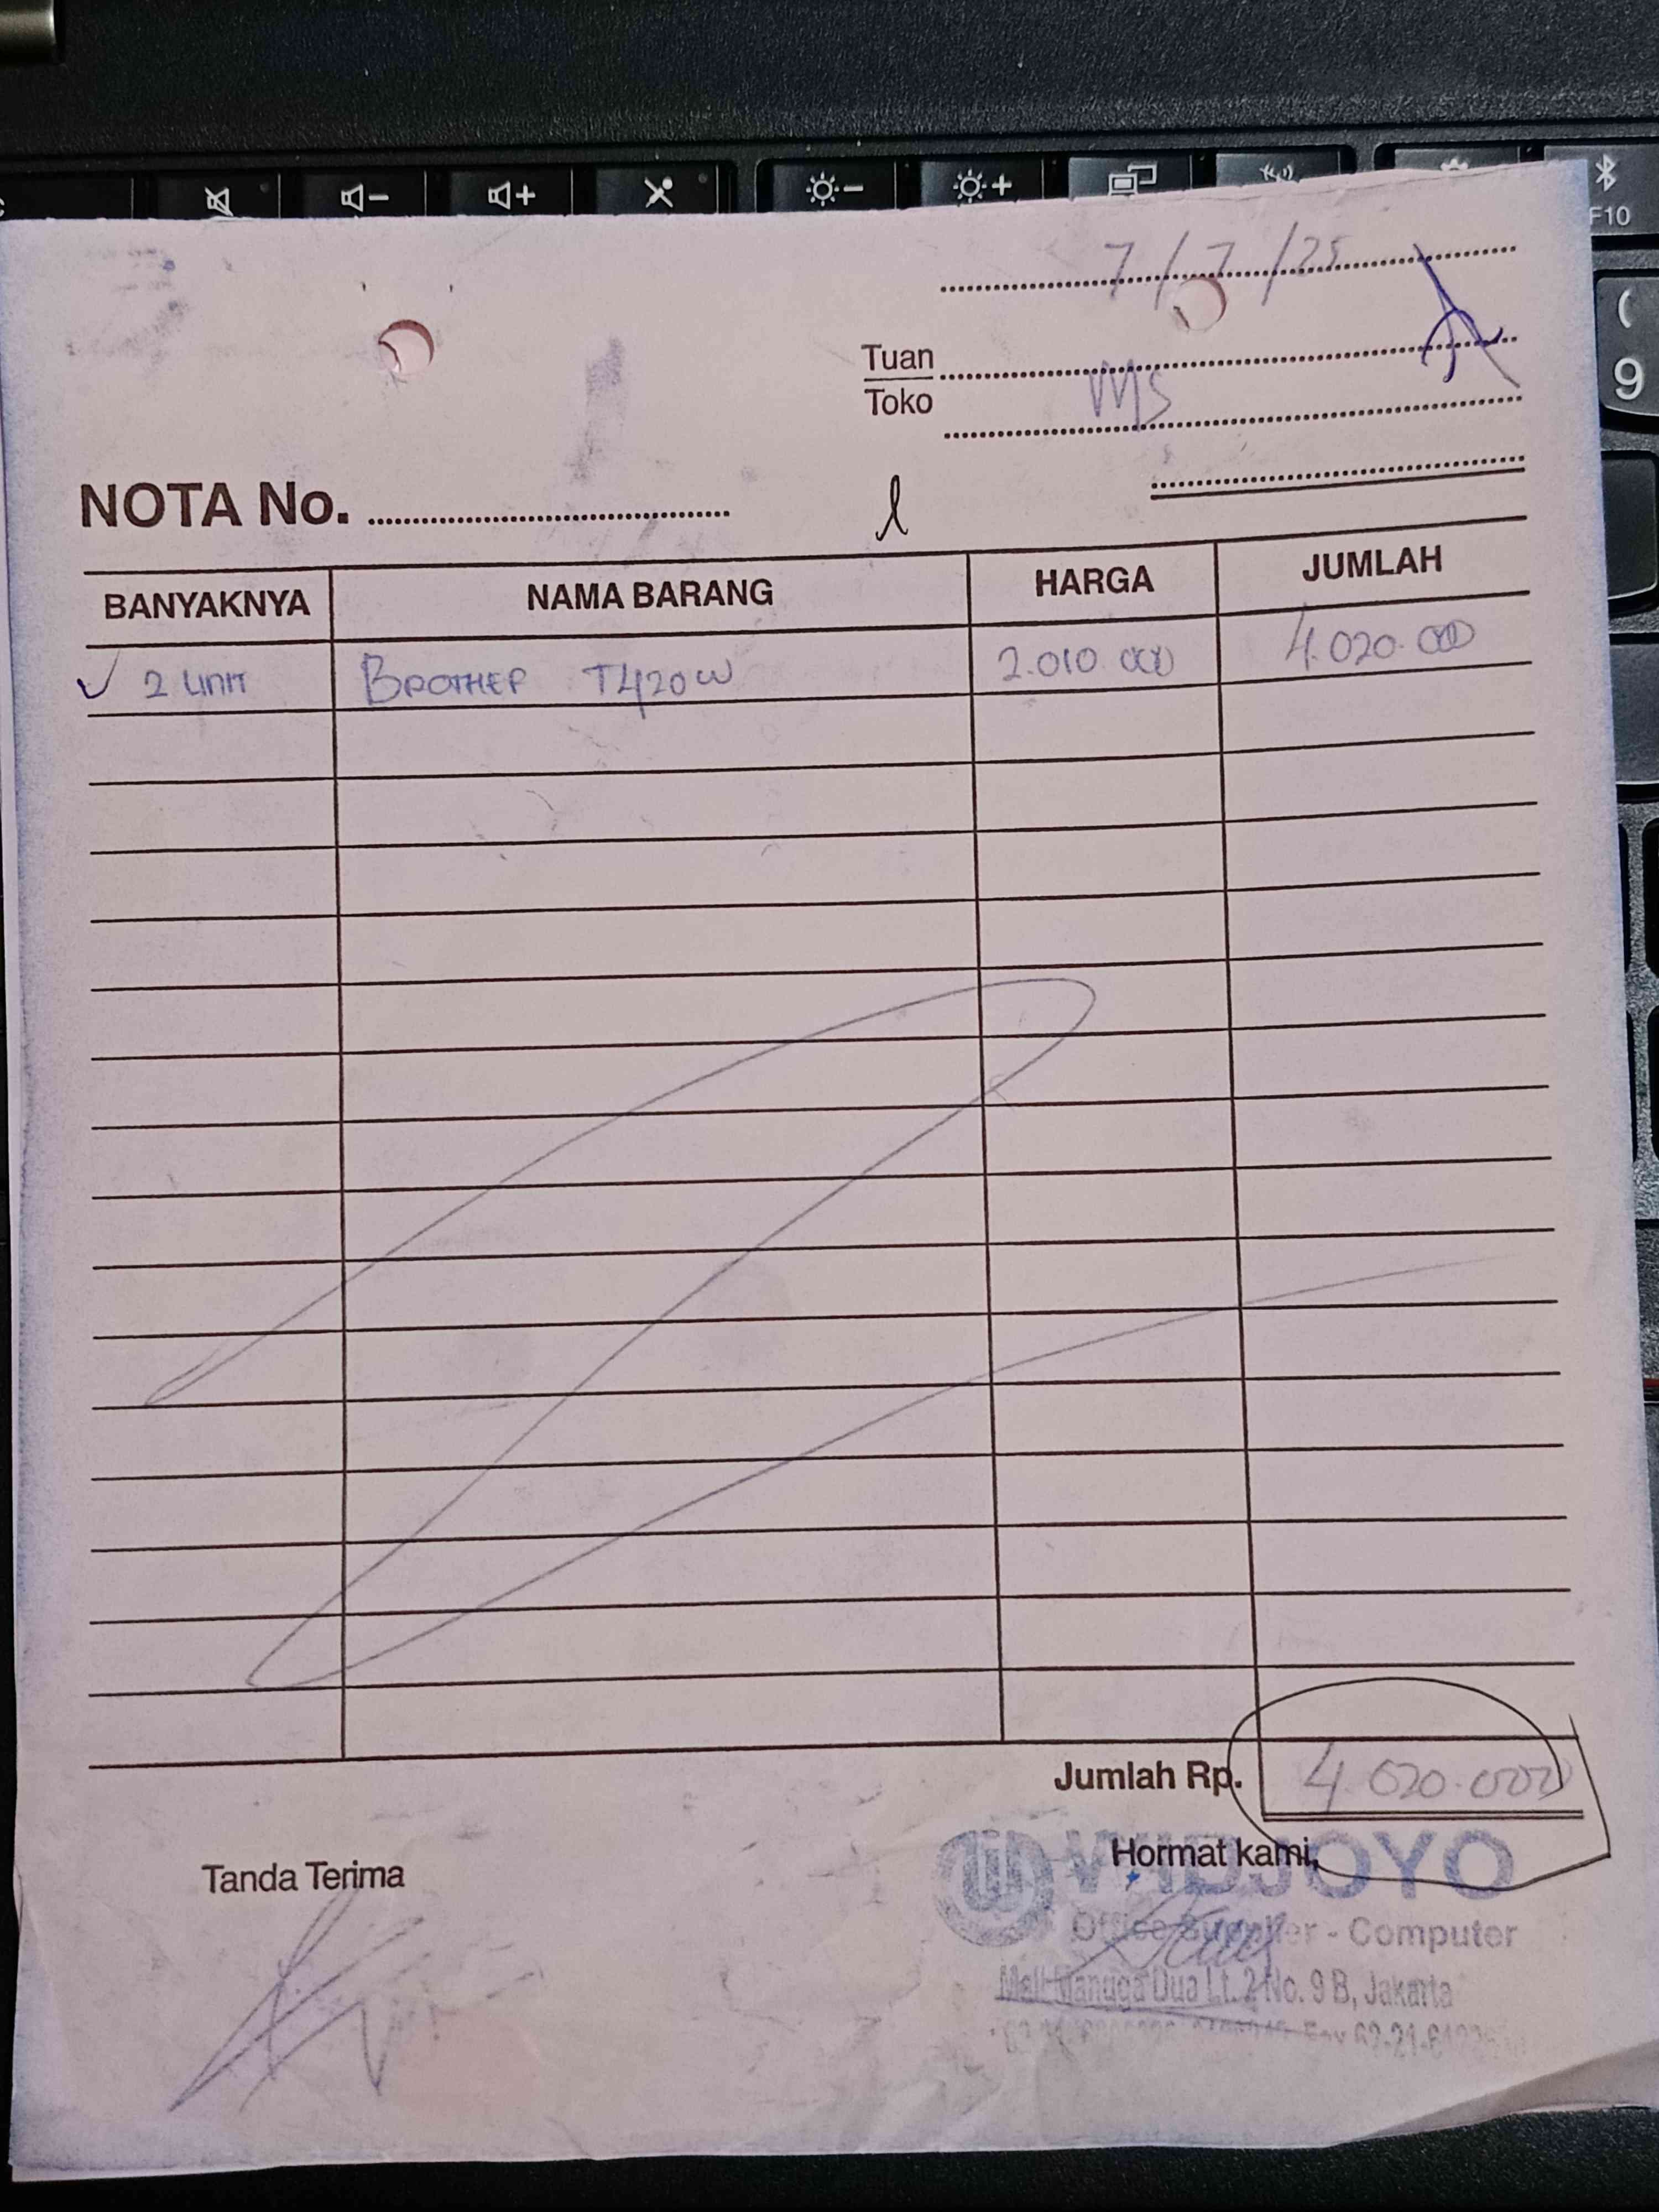 F10
(
9
7/7/25
Tuan
Toko
MS
NOTA No.
BANYAKNYA NAMA BARANG HARGA JUMLAH
2 UNIT BROTHER T420W 2.010.000 4.020.000
Jumlah Rp. 4.020.000
Tanda Terima Hormat kami,
WIDJOYO
Office Supplier - Computer
Mall Mangga Dua Lt. 2 No. 9 B, Jakarta
Fax 62-21-